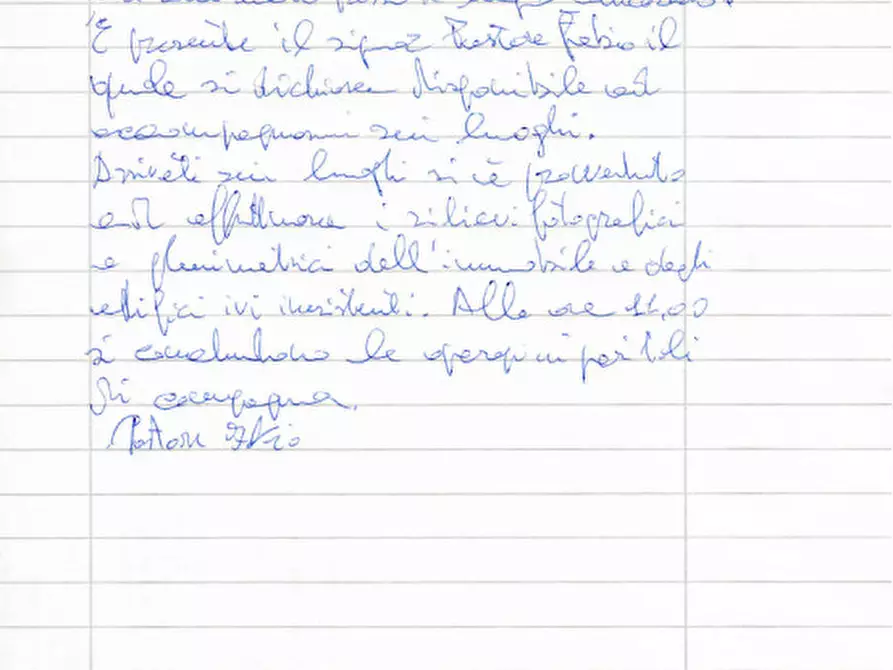 È presente il signor Pastore Fabio il
quale si dichiara disponibile ad
accompagnarmi sui luoghi.
Arrivati sui luoghi si è provveduto
ad effettuare i rilievi fotografici
e planimetrici dell'immobile e degli
edifici ivi insistenti. Alle ore 11,00
si concludono le operazioni peritali
di campagna.